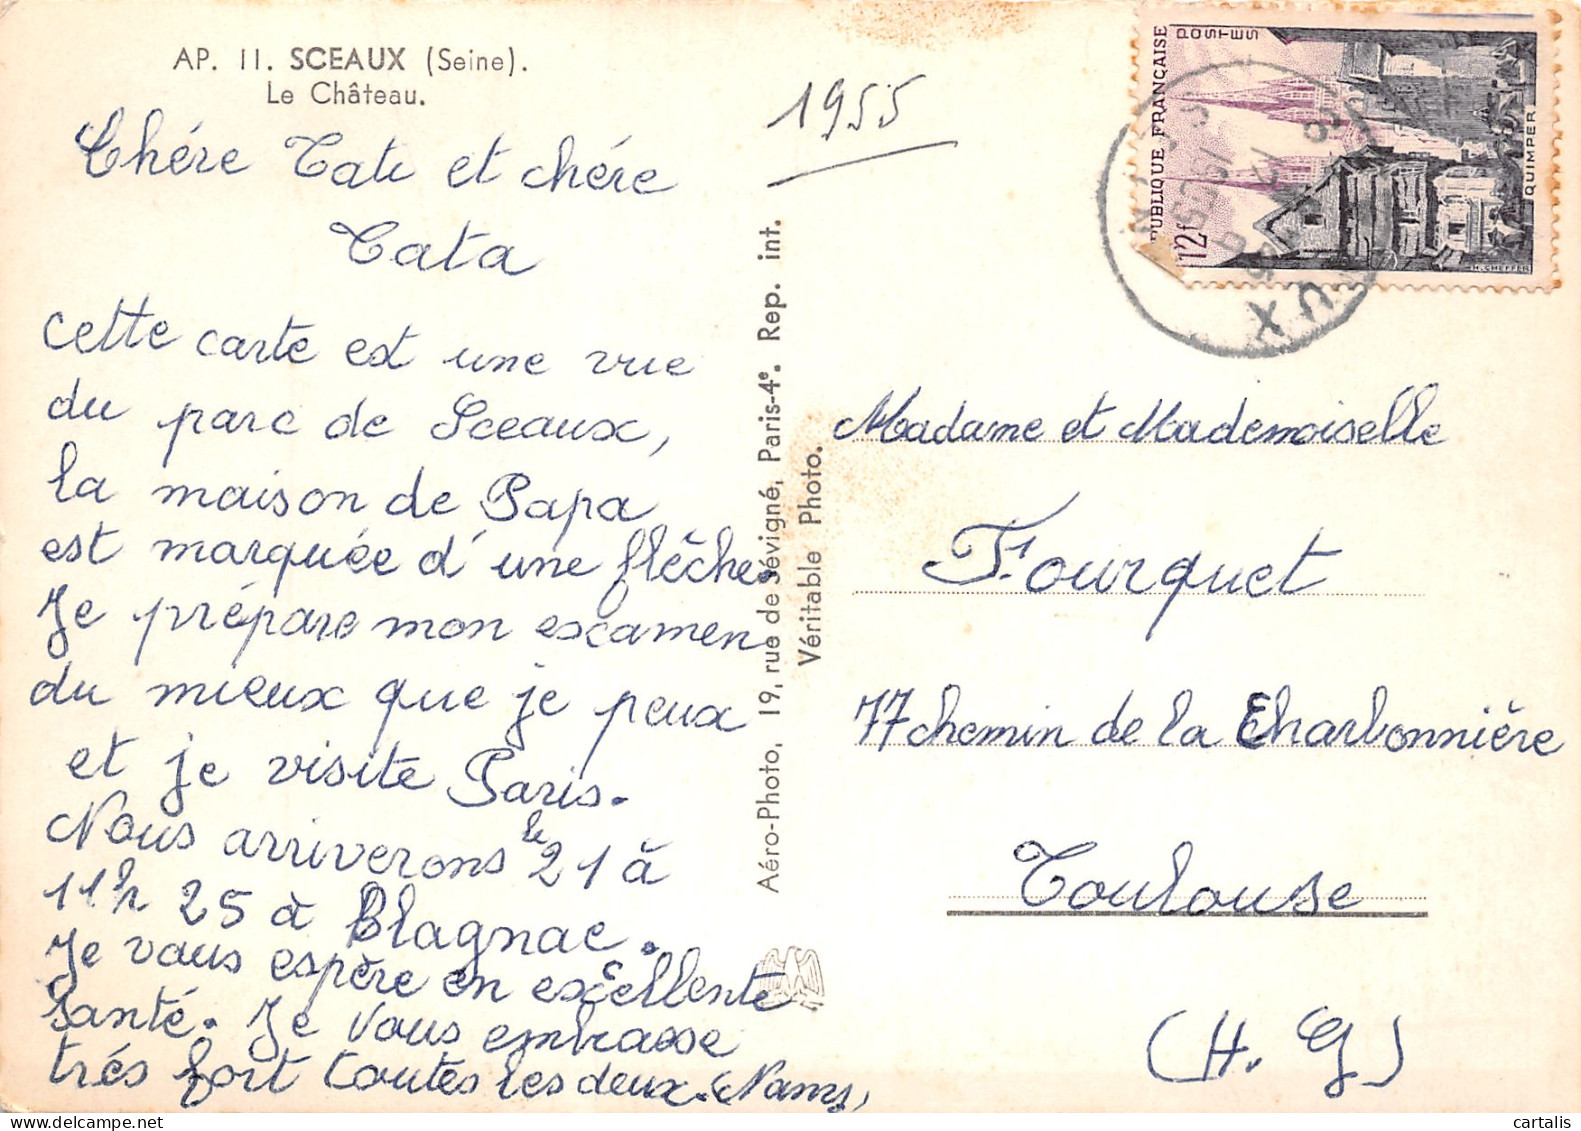 AP. 11. SCEAUX (Seine).
Le Château.
Chére Tati et chére
Tata
cette carte est une vue
du parc de Sceaux,
la maison de Papa
est marquée d'une flêche.
Je prépare mon examen
du mieux que je peux
et je visite Paris.
Nous arriverons le 21 à
11h 25 à Blagnac.
Je vous espère en excellente
santé. Je vous embrasse
trés fort toutes les deux.
Aéro-Photo, 19, rue de Sévigné, Paris-4e. Rep. int.
Véritable Photo.
1955
RÉPUBLIQUE FRANÇAISE
POSTES
12f
QUIMPER
H. CHEFFER
Madame et Mademoiselle
Fourquet
77 chemin de la Charbonnière
Toulouse
(H. G)
cartalis